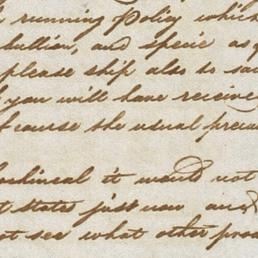 running Policy which
bullion, and specie as
please ship also to sa
you will have receive
f course the usual preca
ochineal it would not
t state just now and
ot see what other prod